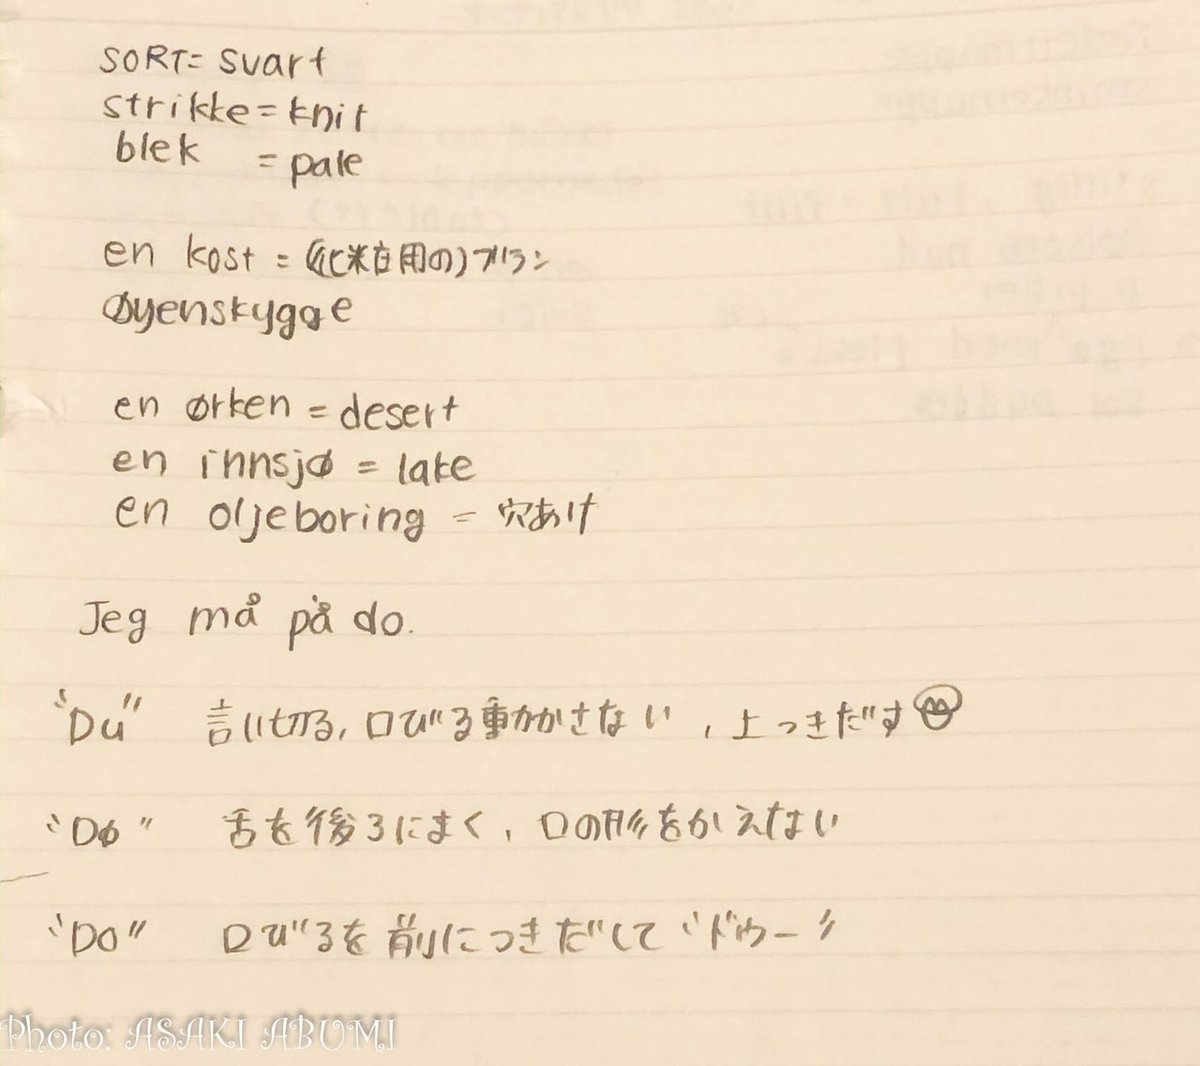 SORT = svart
strikke = knit
blek = pale
en kost = (化粧用の)ブラシ
øyenskygge
en ørken = desert
en innsjø = lake
en oljeboring = 穴あけ
Jeg må på do.
"Du" 言い切る, 口びる動かさない, 上つきだす
"Dø" 舌を後ろにまく, 口の形をかえない
"Do" 口びるを前につきだして "ドゥー"
Photo: ASAKI ABUMI